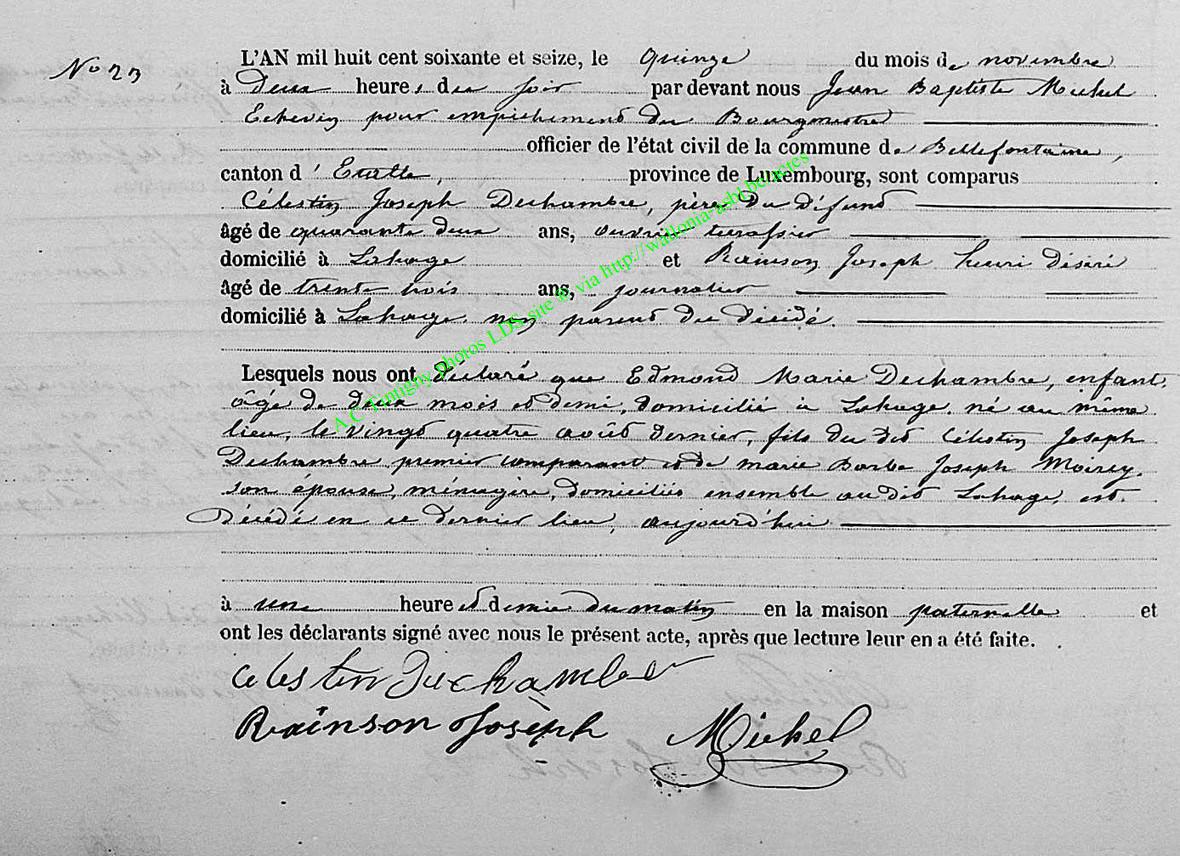 No 23
L'AN mil huit cent soixante et seize, le quinze du mois de novembre
à Deux heures du soir par devant nous Jean Baptiste Michel
Echevin pour empêchement du Bourgmestre
officier de l'état civil de la commune de Bellefontaine,
canton d'Etalle, province de Luxembourg, sont comparus
Célestin Joseph Dechambre, père du défunt
âgé de quarante deux ans, ouvrier terrassier
domicilié à Lahage et Rainson Joseph henri Désiré
âgé de trente trois ans, journalier
domicilié à Lahage, non parent du décédé.
Lesquels nous ont déclaré que Edmond Marie Dechambre, enfant,
âgé de deux mois et demi, domicilié à Lahage, né au même
lieu, le vingt quatre août dernier, fils du dit Célestin Joseph
Dechambre premier comparant et de marie Barbe Joseph Moirey,
son épouse, ménagère, domiciliés ensemble au dit Lahage, est
Décédé en ce dernier lieu, aujourd'hui
à une heure et demie du matin en la maison paternelle et
ont les déclarants signé avec nous le présent acte, après que lecture leur en a été faite.
celestin Dechambre
Rainson Josèph Michel
A.C. Tintigny photos LDS, site & via http://wallonia-asbl.be/actes